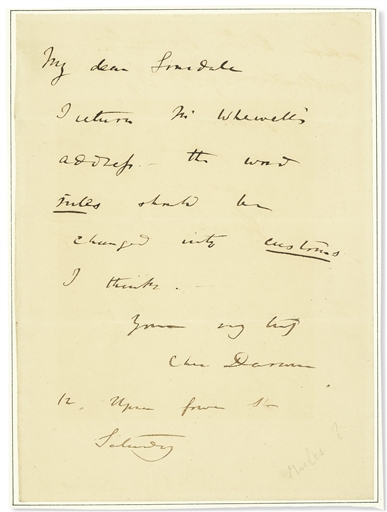 My dear Lonsdale
I return Mr Whewell's
address — the word
rules should be
changed into customs
I think. —
Yours very truly
Chas Darwin
12. Upper Gower St
Saturday